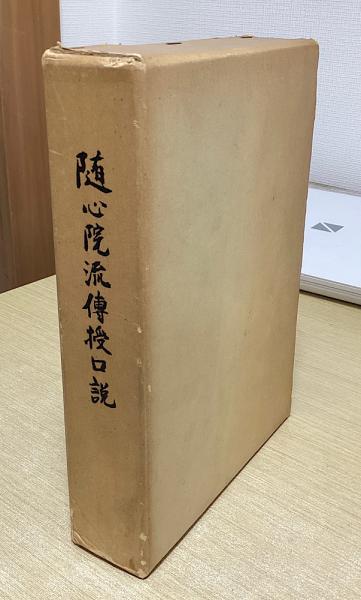 随心院流傳授口説